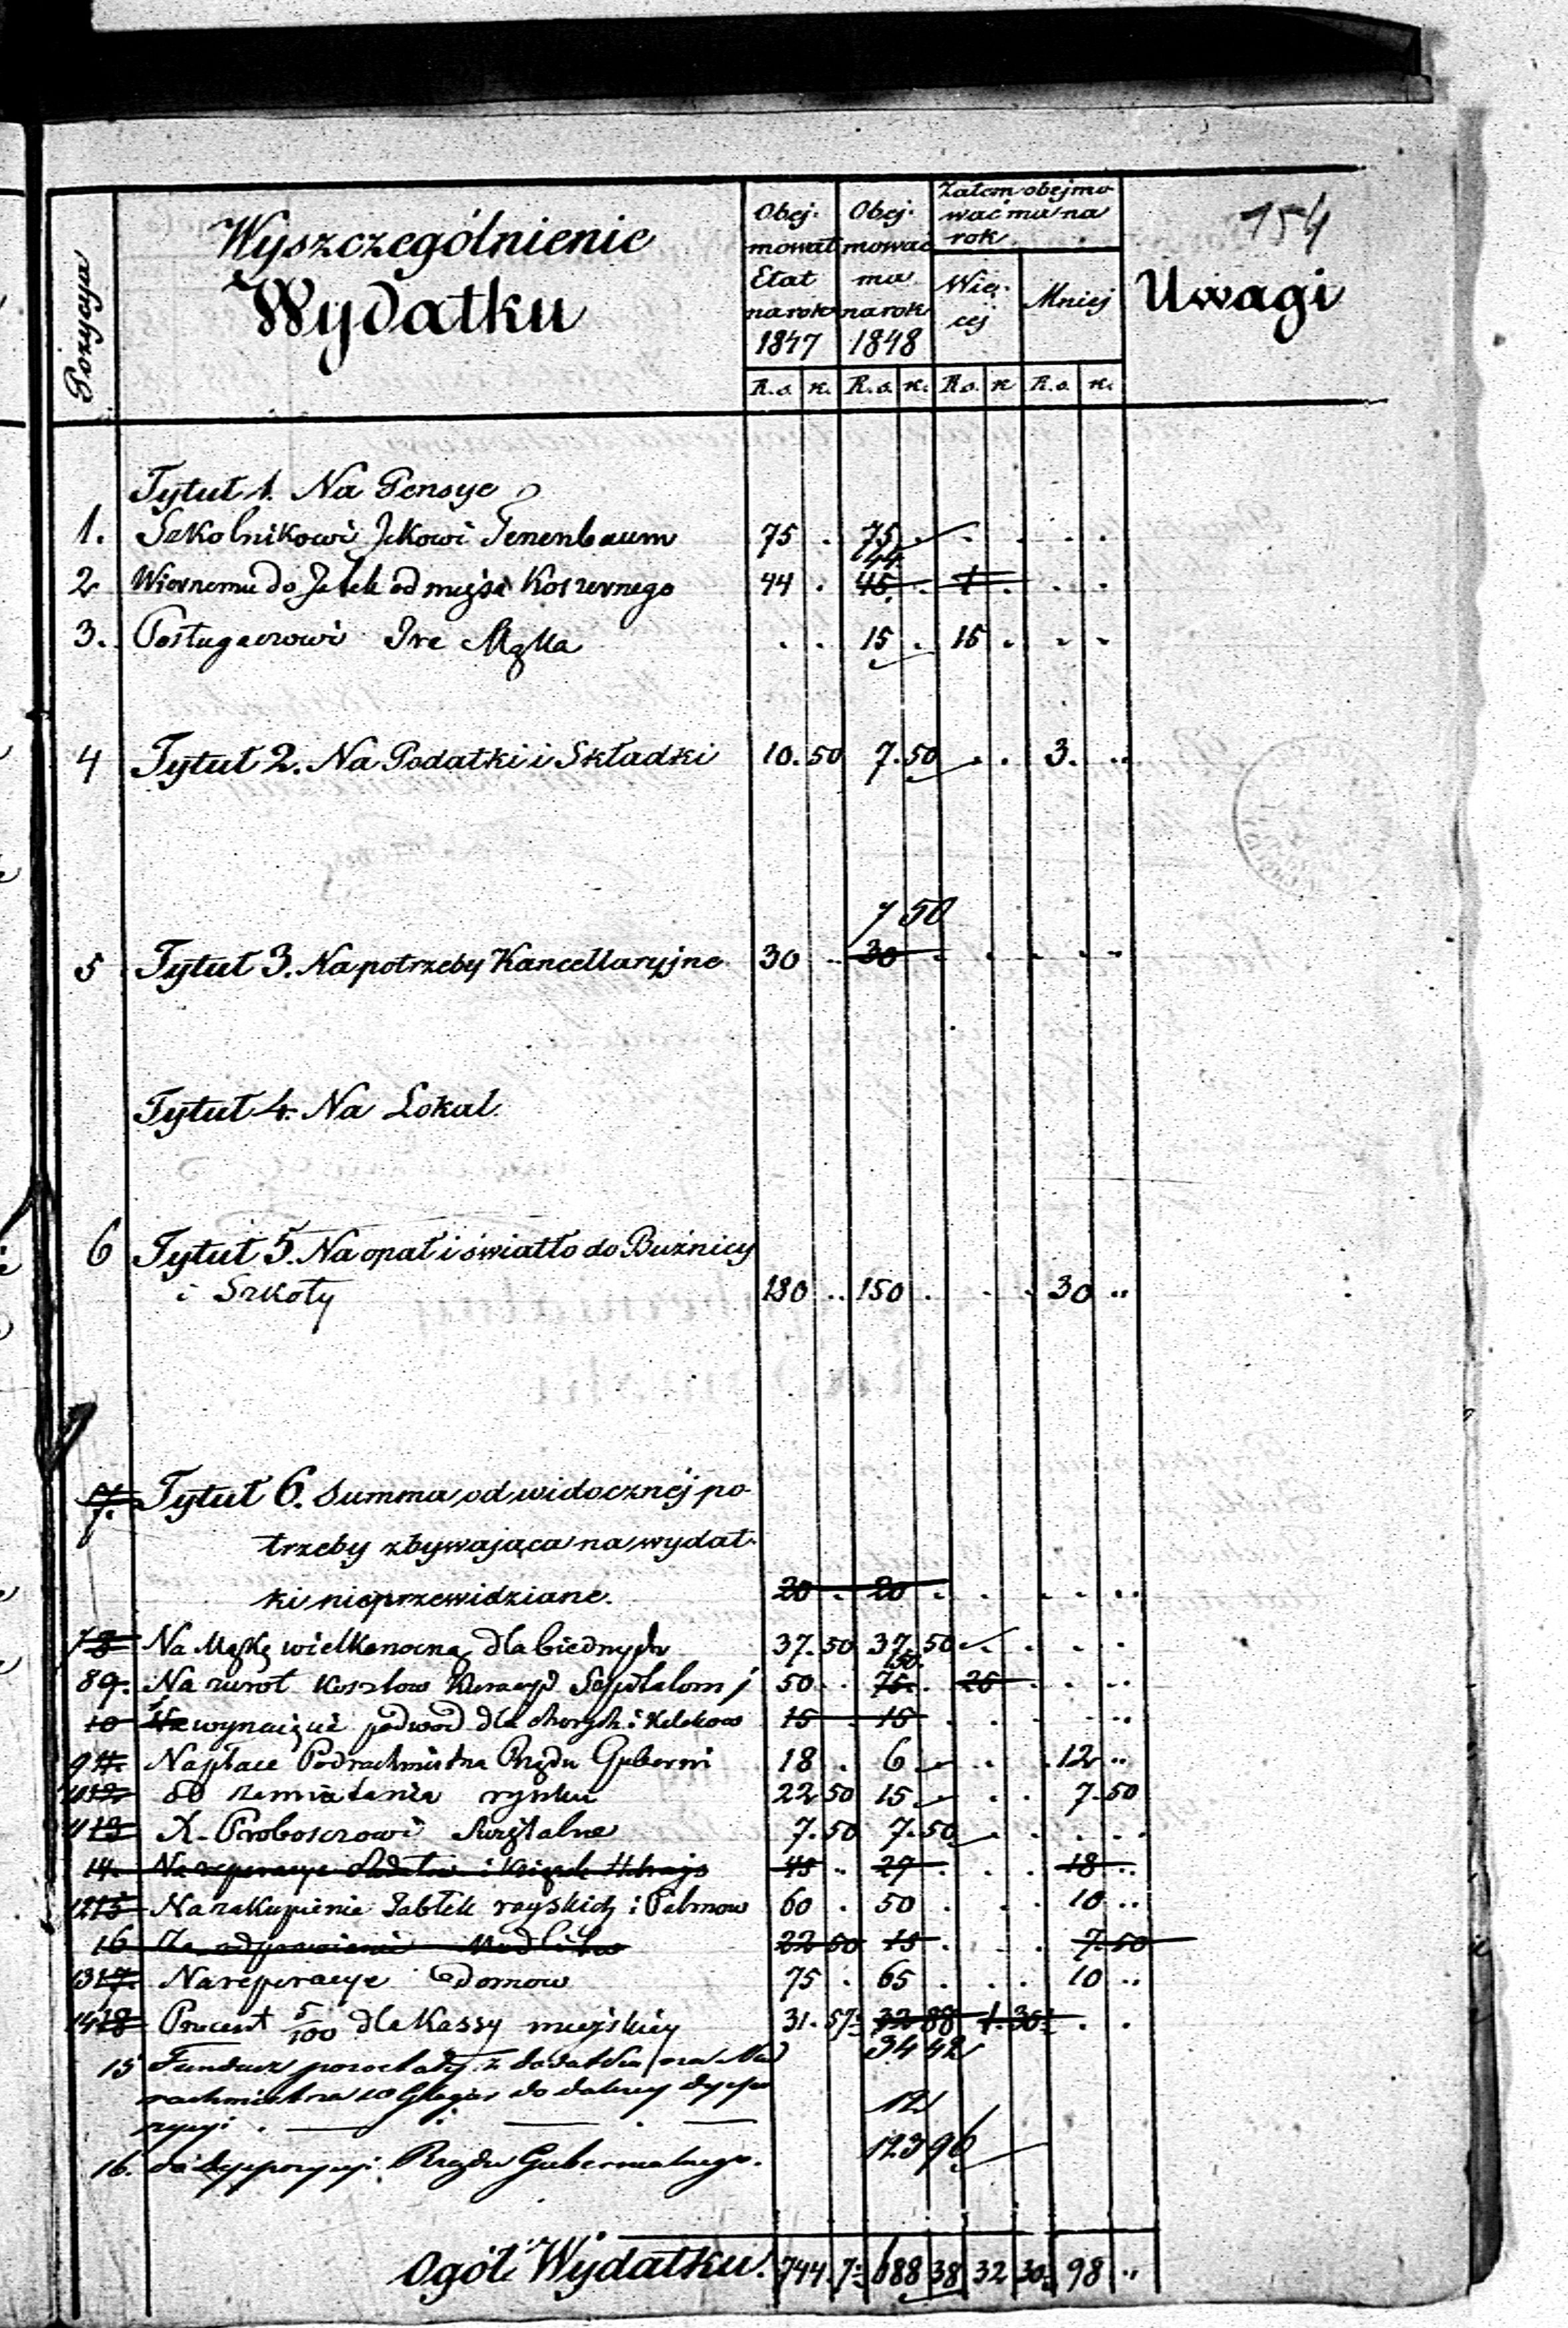 154
Pozycya
Wyszczególnienie
Wydatku
Obej-
mował
Etat
na rok
1847
Obej-
mować
ma
na rok
1848
Zatem obejmo
wać ma na
rok
Wię-
cej
Mniej
Uwagi
R.s. k. R.s. k. R.s. k R.s. k.
Tytuł 1. Na Pensye
1. Szkolnikowi Jckowi Tenenbaum 75 . 75 . . . . .
44
2 Wiernemu do Jatek od mięsa Koszernego 44 . 45 . 1 . . .
3. Posługaczowi . . 15 . 15 . . .
4 Tytuł 2. Na Podatki i Składki 10.50 7.50 . . 3. ..
7 50
5 Tytuł 3. Na potrzeby Kancellaryjne 30 .. 30 . . . . ..
Tytuł 4. Na Lokal
6 Tytuł 5. Na opał i światło do Bużnicy
i Szkoły 180 .. 150 . . . 30 ..
7. Tytuł 6. Summa od widocznéj po-
trzeby zbywająca na wydat-
ki nieprzewidziane. 20 . 20 . . . . ..
7 8 Na Mąkę wielkanocną dla biednych 37.50 37.50 . . . .
50.
8 9. Na zwrot kosztow Kuracyi 50 . 75 . 25 . . ..
10 wynajęcie podwod dla chorych i kalekow 15 . 15 . . . . ..
9 11. Na płace Podrachmistrza Rządu Guberni 18 . 6 . . . 12 ..
10 12. od zamiatania rynku 22 50 15 . . . 7.50
11 13 X. Proboszczowi 7.50 7.50 . . . .
14. Na reperacye 45 .. 27 . . . 18 ..
12 15 Na zakupienie Jabłek rayskich i Palmow 60 . 50 . . . 10 ..
16 Za odprawienie Modlitw 22 50 15 . . . 7.50
13 17. Na reperacye Domow 75 . 65 . . . 10 ..
14 18 Procent 5/100 dla Kassy mieyskiey 31.57 32 88 1.30 . .
34 42
15 Fundusz pozostały z dodatku na
rachmistrza do dalszey dyspo
zycyi 12
16. do dyspozycyi Rządu Gubernialnego. 123 96
Ogół Wydatku. 744.7 688 38 32 30 98 ..